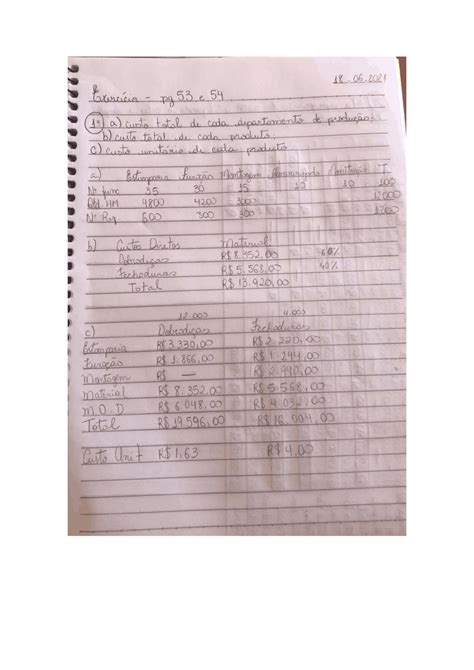 18.06.2021
Exercício - pg 53 e 54
1º a) custo total de cada departamento de produção.
b) custo total de cada produto.
c) custo unitário de cada produto
a) Estamparia Furação Montagem Almoxarifado Manutenção T
Nº func 35 30 15 10 10 100
Qtd. HM 4800 4200 3000 12000
Nº Req. 600 300 300 1200
b) Custos Diretos Material
Dobradiças R$ 8.352,00 60%
Fechaduras R$ 5.568,00 40%
Total R$ 13.920,00
12.000 4.000
c) Dobradiças Fechaduras
Estamparia R$ 3.330,00 R$ 2.220,00
Furação R$ 1.866,00 R$ 1.244,00
Montagem R$ — R$ 2.940,00
Material R$ 8.352,00 R$ 5.568,00
M.O.D R$ 6.048,00 R$ 4.032,00
Total R$ 19.596,00 R$ 16.004,00
Custo Unit R$ 1,63 R$ 4,00